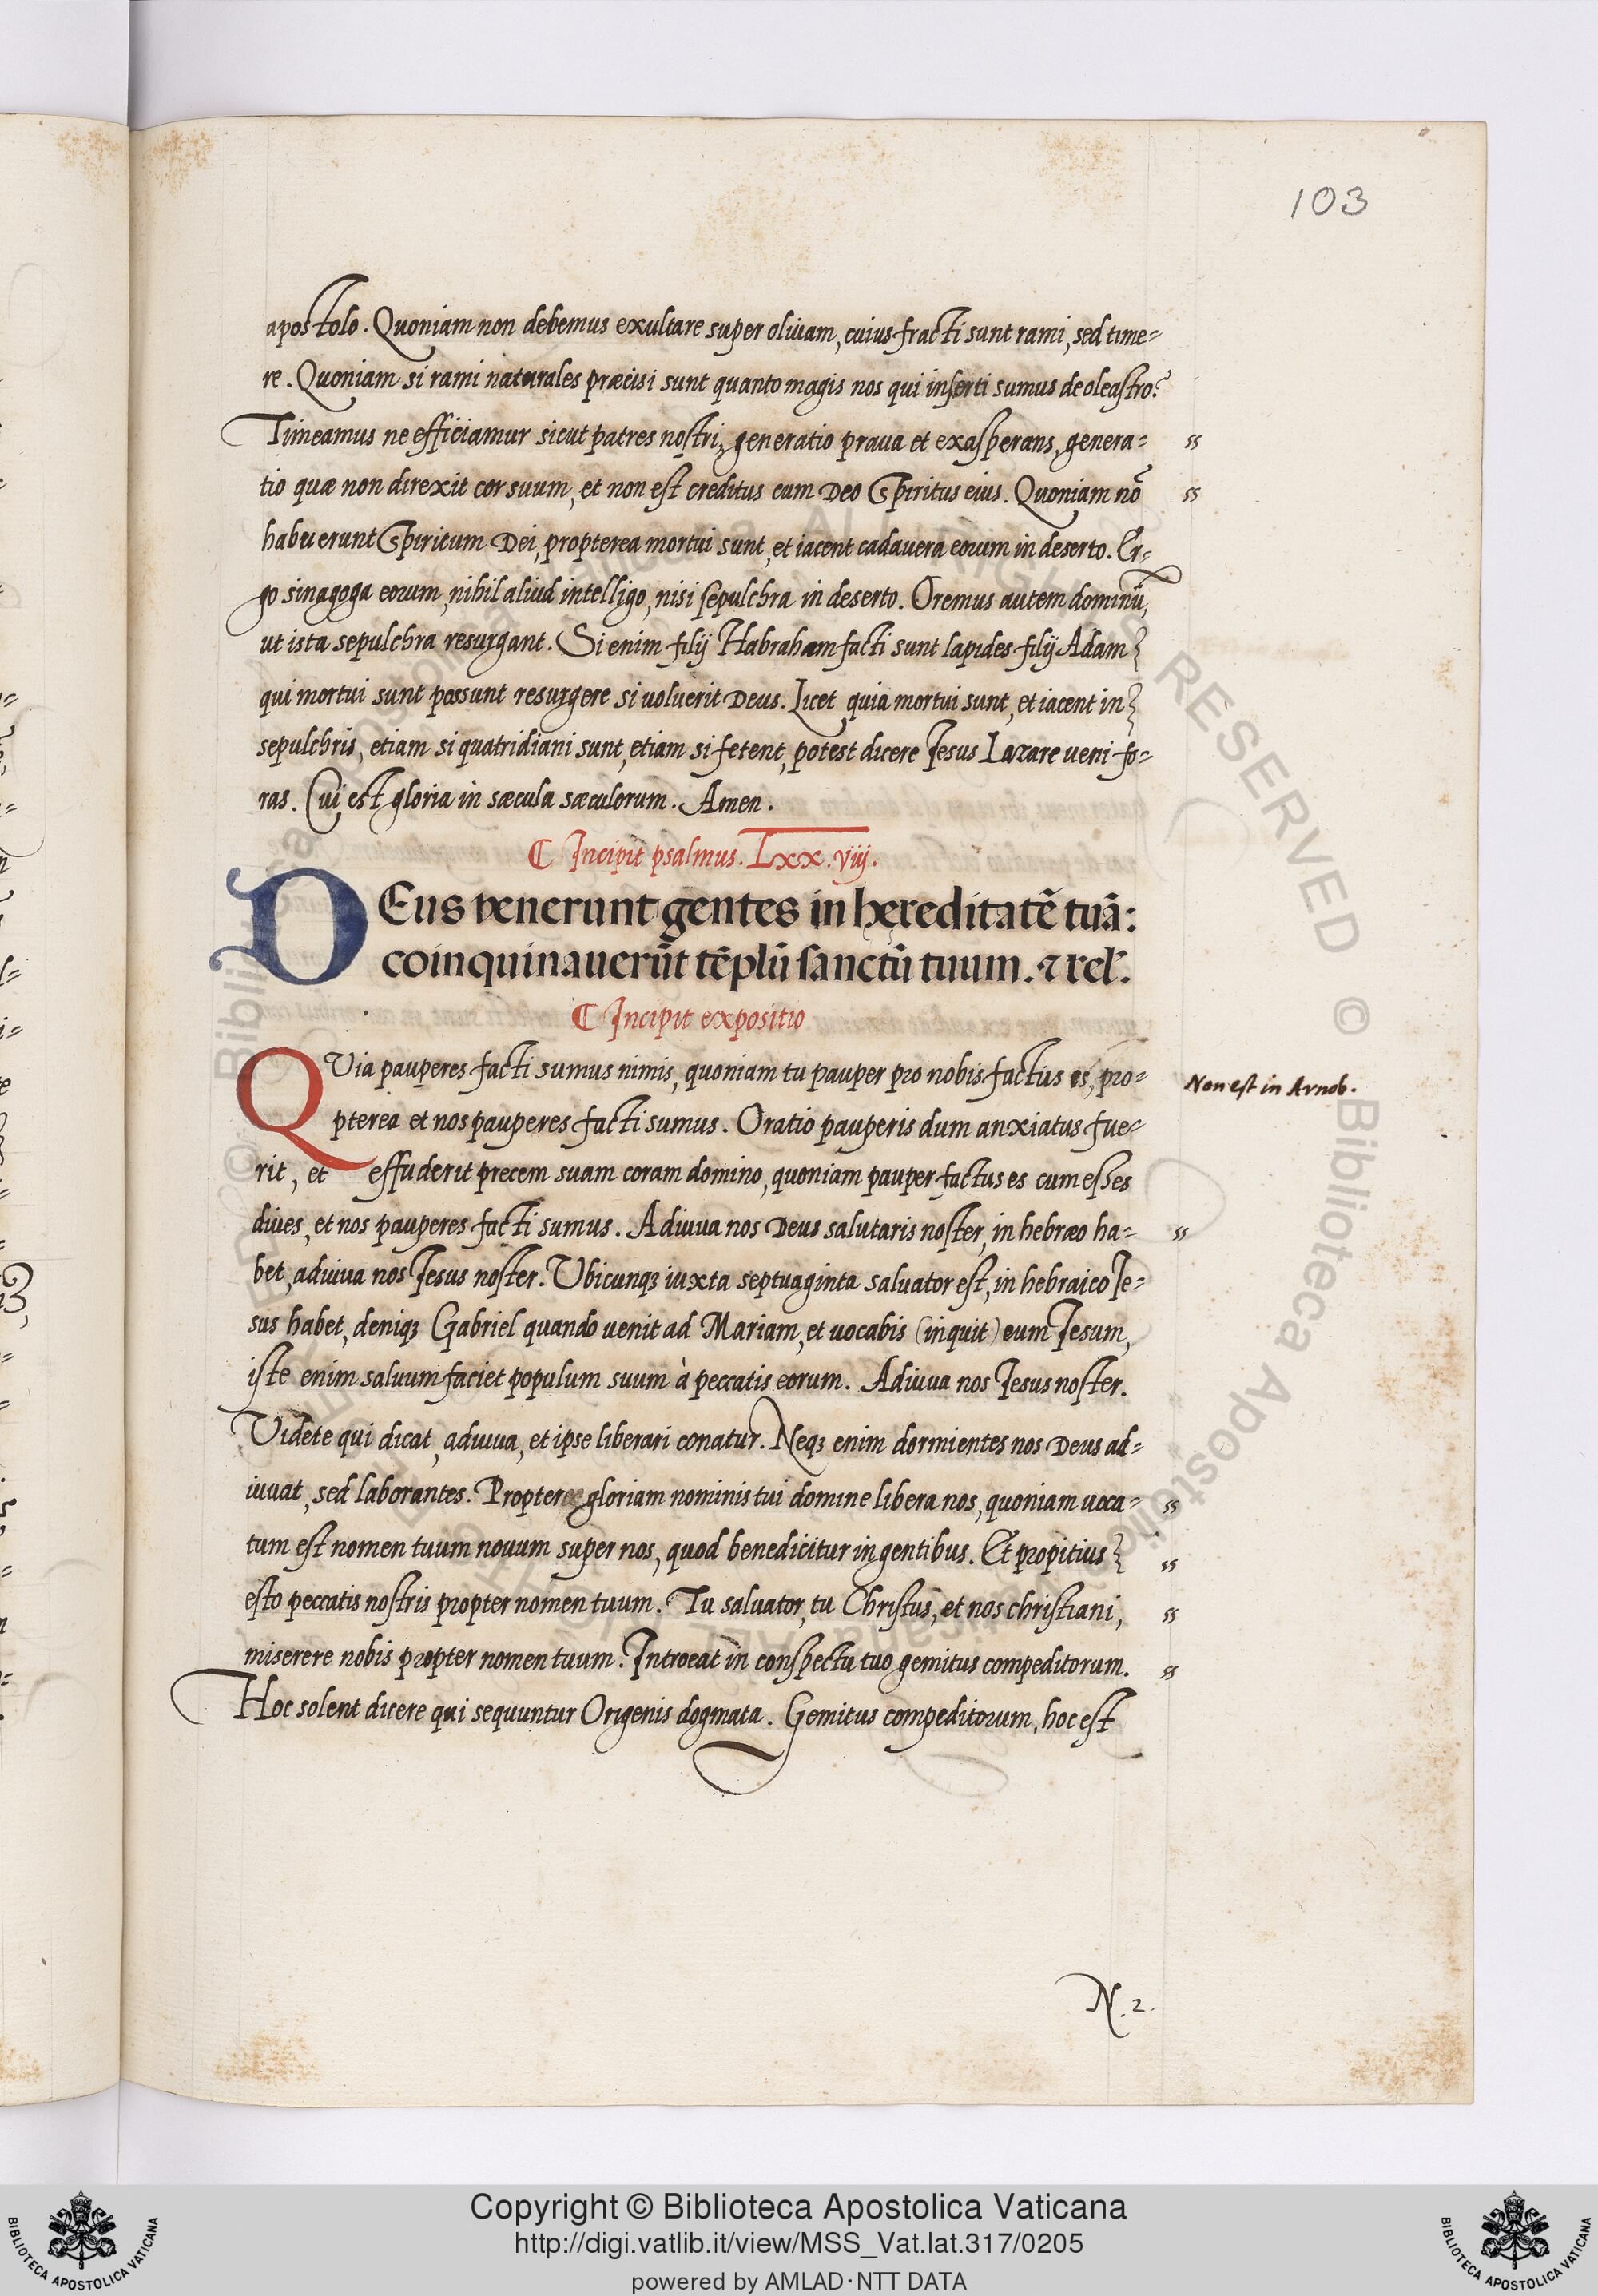 103
apostolo. Quoniam non debemus exultare super oliuam, cuius fracti sunt rami, sed time=
re. Quoniam si rami naturales præcisi sunt quanto magis nos qui inserti sumus de oleastro?
Timeamus ne efficiamur sicut patres nostri, generatio praua et exasperans, genera= ss
tio quæ non direxit cor suum, et non est creditus cum Deo Spiritus eius. Quoniam nō ss
habuerunt Spiritum Dei, propterea mortui sunt, et iacent cadauera eorum in deserto. Er=
go sinagoga eorum, nihil aliud intelligo, nisi sepulchra in deserto. Oremus autem dominū,
ut ista sepulchra resurgant. Si enim filij Habraham facti sunt lapides filij Adam
qui mortui sunt possunt resurgere si uoluerit Deus. Licet quia mortui sunt, et iacent in
sepulchris, etiam si quatridiani sunt, etiam si fetent, potest dicere Jesus Lazare ueni fo=
ras. Cui est gloria in sæcula sæculorum. Amen.
¶ Incipit psalmus. Lxx.viij.
DEus venerunt gentes in hęreditatē tuā:
coinquinauerūt tēplū sanctū tuum. ⁊ rel'.
¶ Incipit expositio
QVia pauperes facti sumus nimis, quoniam tu pauper pro nobis factus es, pro= Non est in Arnob.
pterea et nos pauperes facti sumus. Oratio pauperis dum anxiatus fue=
rit, et effuderit precem suam coram domino, quoniam pauper factus es cum esses
diues, et nos pauperes facti sumus. Adiuua nos Deus salutaris noster, in hebræo ha= ss
bet, adiuua nos Jesus noster. Ubicunqꝫ iuxta septuaginta saluator est, in hebraico Je=
sus habet, deniqꝫ Gabriel quando uenit ad Mariam, et uocabis (inquit) eum Jesum,
iste enim saluum faciet populum suum à peccatis eorum. Adiuua nos Jesus noster.
Videte qui dicat, adiuua, et ipse liberari conatur. Neqꝫ enim dormientes nos Deus ad=
iuuat, sed laborantes. Propter gloriam nominis tui domine libera nos, quoniam uoca= ss
tum est nomen tuum nouum super nos, quod benedicitur in gentibus. Et propitius ss
esto peccatis nostris propter nomen tuum. Tu saluator, tu Christus, et nos christiani, ss
miserere nobis propter nomen tuum. Introeat in conspectu tuo gemitus compeditorum. ss
Hoc solent dicere qui sequuntur Origenis dogmata. Gemitus compeditorum, hoc est
N. 2.
Copyright © Biblioteca Apostolica Vaticana
http://digi.vatlib.it/view/MSS_Vat.lat.317/0205
powered by AMLAD·NTT DATA
BIBLIOTECA APOSTOLICA VATICANA
BIBLIOTECA APOSTOLICA VATICANA